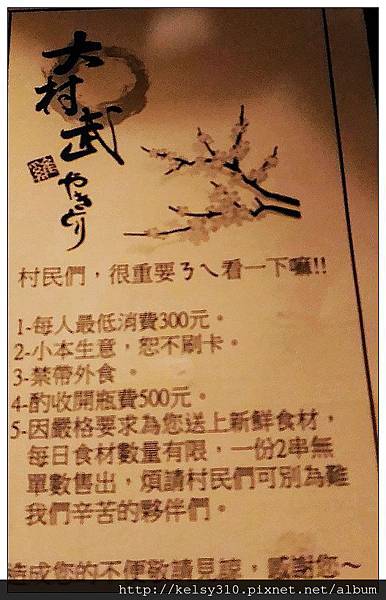 大村武
やきとり
村民們，很重要ㄋㄟ看一下嘛!!
1-每人最低消費300元。
2-小本生意，恕不刷卡。
3-禁帶外食。
4-酌收開瓶費500元。
5-因嚴格要求為您送上新鮮食材，
每日食材數量有限，一份2串無
單數售出，煩請村民們可別為難
我們辛苦的夥伴們。
造成您的不便敬請見諒，感謝您～
http://kelsy310.pixnet.net/album